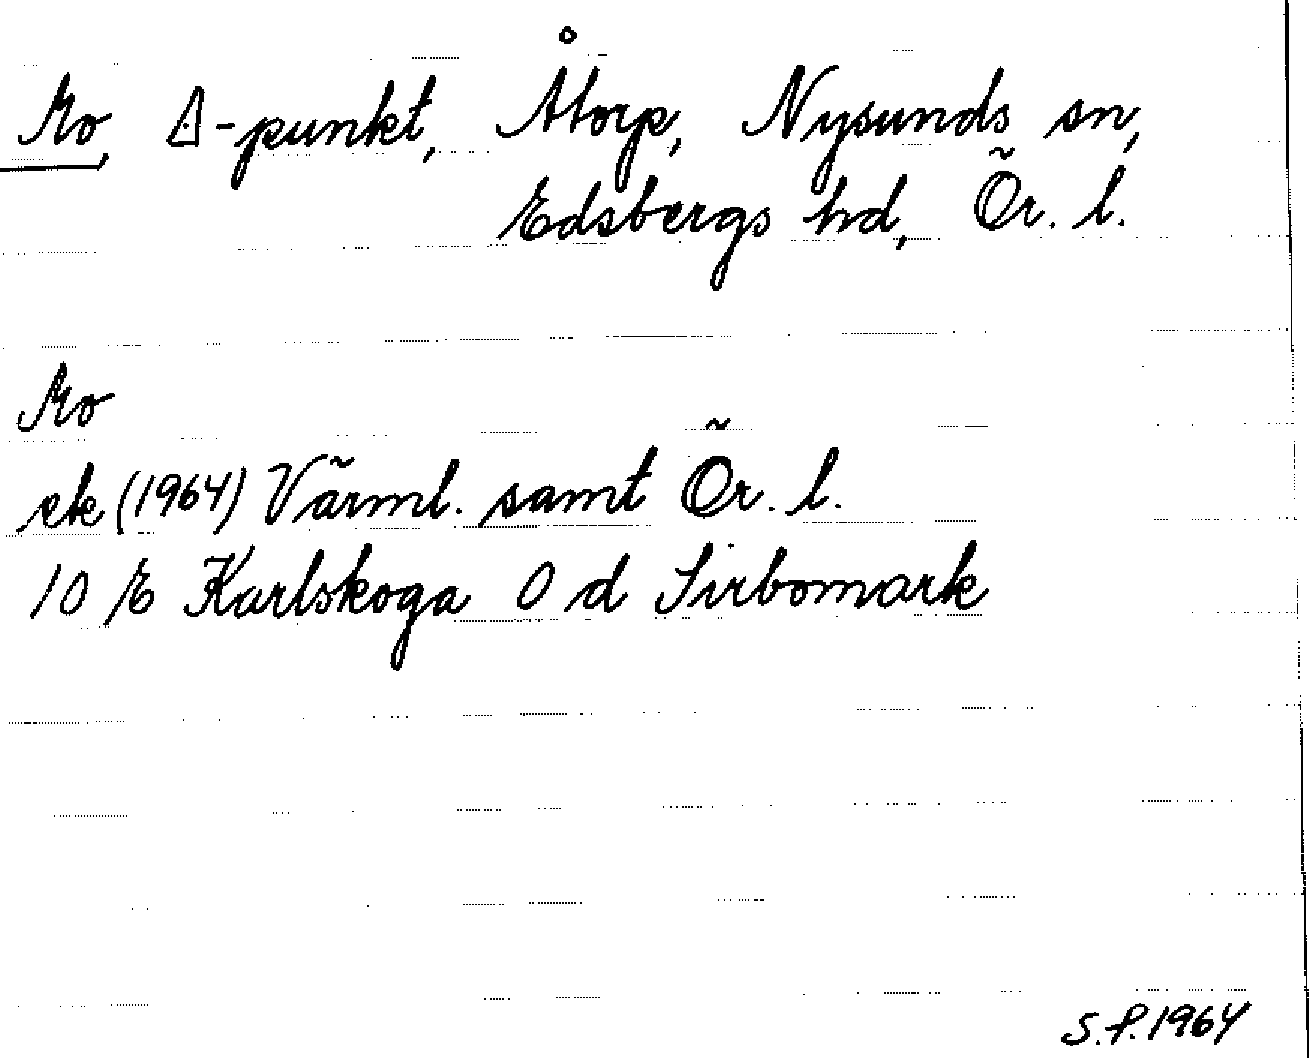 Mo, ∆-punkt, Åtorp, Nysunds sn,
Edsbergs hd, Ör. l.
Mo
ek (1964) Värml. samt Ör. l.
10 E Karlskoga 0 d Sirbomark
S.F. 1964